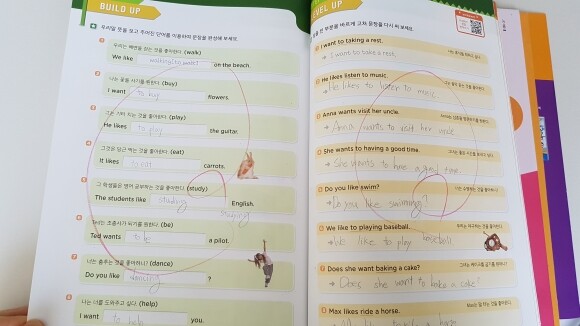 BUILD UP
우리말 뜻을 보고 주어진 단어를 이용하여 문장을 완성해 보세요.
우리는 해변을 걷는 것을 좋아한다. (walk)
We like walking on the beach.
나는 꽃을 사기를 원한다. (buy)
I want to buy flowers.
그는 기타 치는 것을 좋아한다. (play)
He likes to play the guitar.
그것은 당근 먹는 것을 좋아한다. (eat)
It likes to eat carrots.
그 학생들은 영어 공부하는 것을 좋아한다. (study)
The students like studing English.
studying
Ted는 조종사가 되기를 원한다. (be)
Ted wants to be a pilot.
너는 춤추는 것을 좋아하니? (dance)
Do you like dancing ?
나는 너를 도와주고 싶다. (help)
I want to help you.
LEVEL UP
부분을 바르게 고쳐 문장을 다시 써 보세요.
I want to taking a rest.
→ I want to take a rest.
He likes listen to music.
→ He likes to listen to music
Anna wants to visiting her uncle.
→ Anna wants to visit her uncle.
She wants to having a good time.
→ She wants to have a good time.
Do you like swim?
→ Do you like swimming?
We like to playing baseball.
→ We like to play baseball
Does she want baking a cake?
→ Does she want to bake a cake?
Max likes ride a horse.